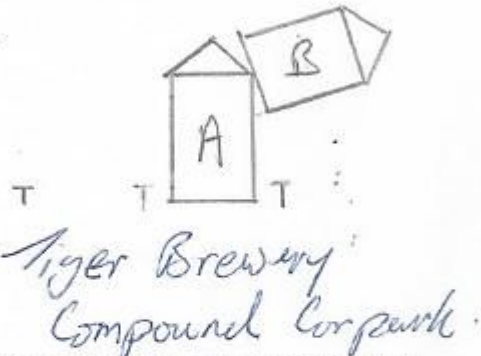 B
A
T T T
Tiger Brewery
Compound Carpark.